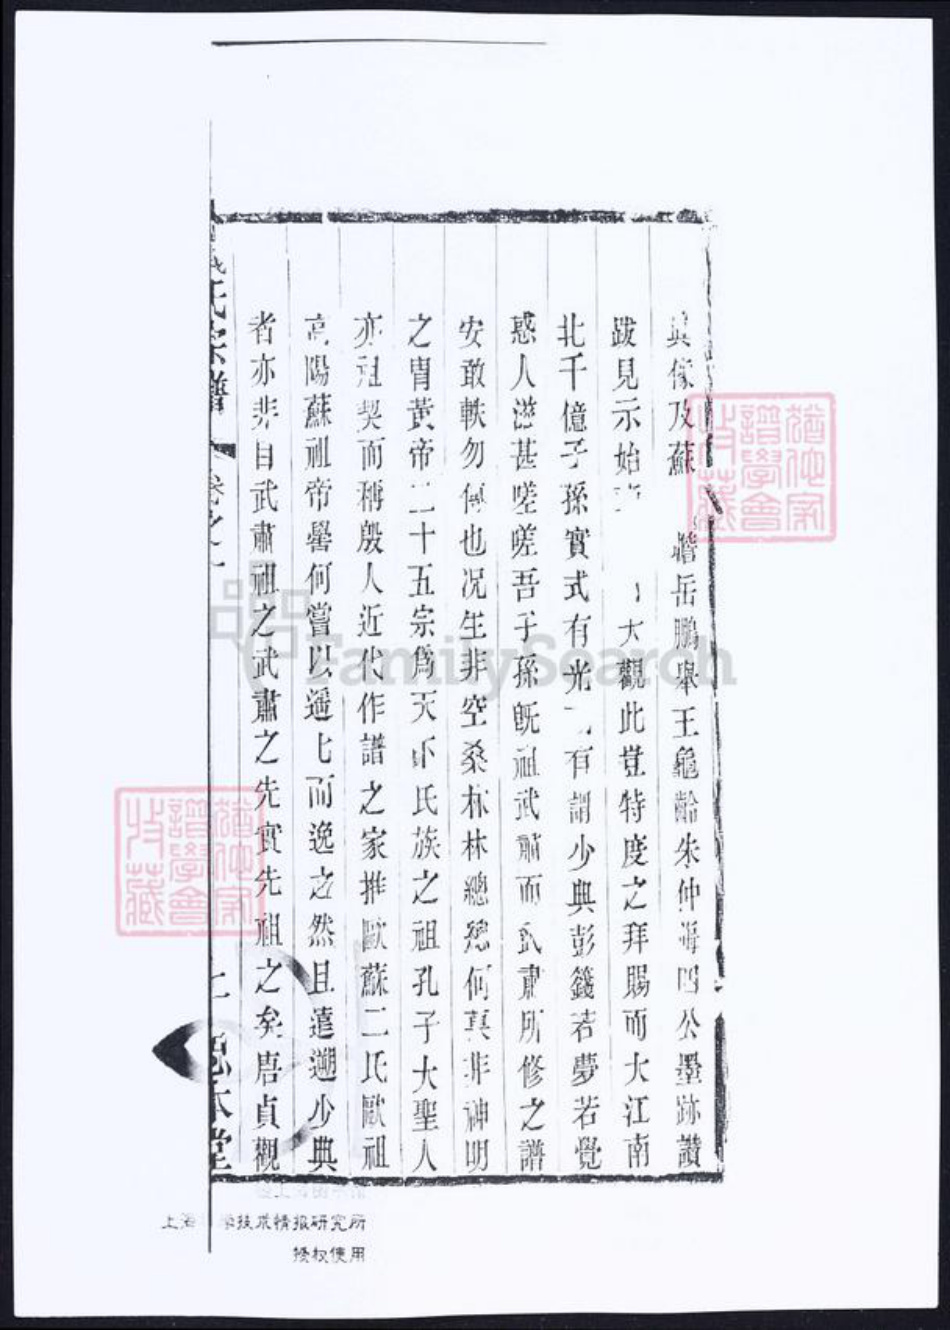 真像及蘇 瞻岳鵬舉王龜齡朱仲晦四公墨跡讚
跋見示始 大觀此豈特度之拜賜而大江南
北千億子孫實式有光 有謂少典彭籛若夢若覺
惑人滋甚嗟嗟吾子孫既祖武肅而武肅所修之譜
安敢軼勿傳也况生非空桑林林總總何莫非神明
之冑黃帝二十五宗爲天下氏族之祖孔子大聖人
亦祖契而稱殷人近代作譜之家推歐蘇二氏歐祖
高陽蘇祖帝嚳何嘗以遥 而逸之然且遠遡少典
者亦非自武肅祖之武肅之先實先祖之矣唐貞觀
氏宗譜 卷之一 思本堂
猶他家譜學會收藏
猶他家譜學會收藏
FamilySearch
上海科学技术情报研究所
授权使用